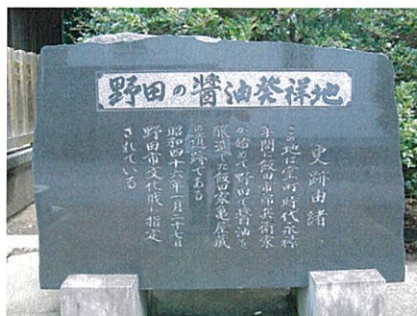 野田の醤油発祥地
史跡由緒
この地は室町時代永禄
年間に飯田市郎兵衛家
が始めて野田で醤油を
醸造した飯田家亀屋蔵
の遺跡である
昭和四十六年一月二十七日
野田市文化財に指定
されている